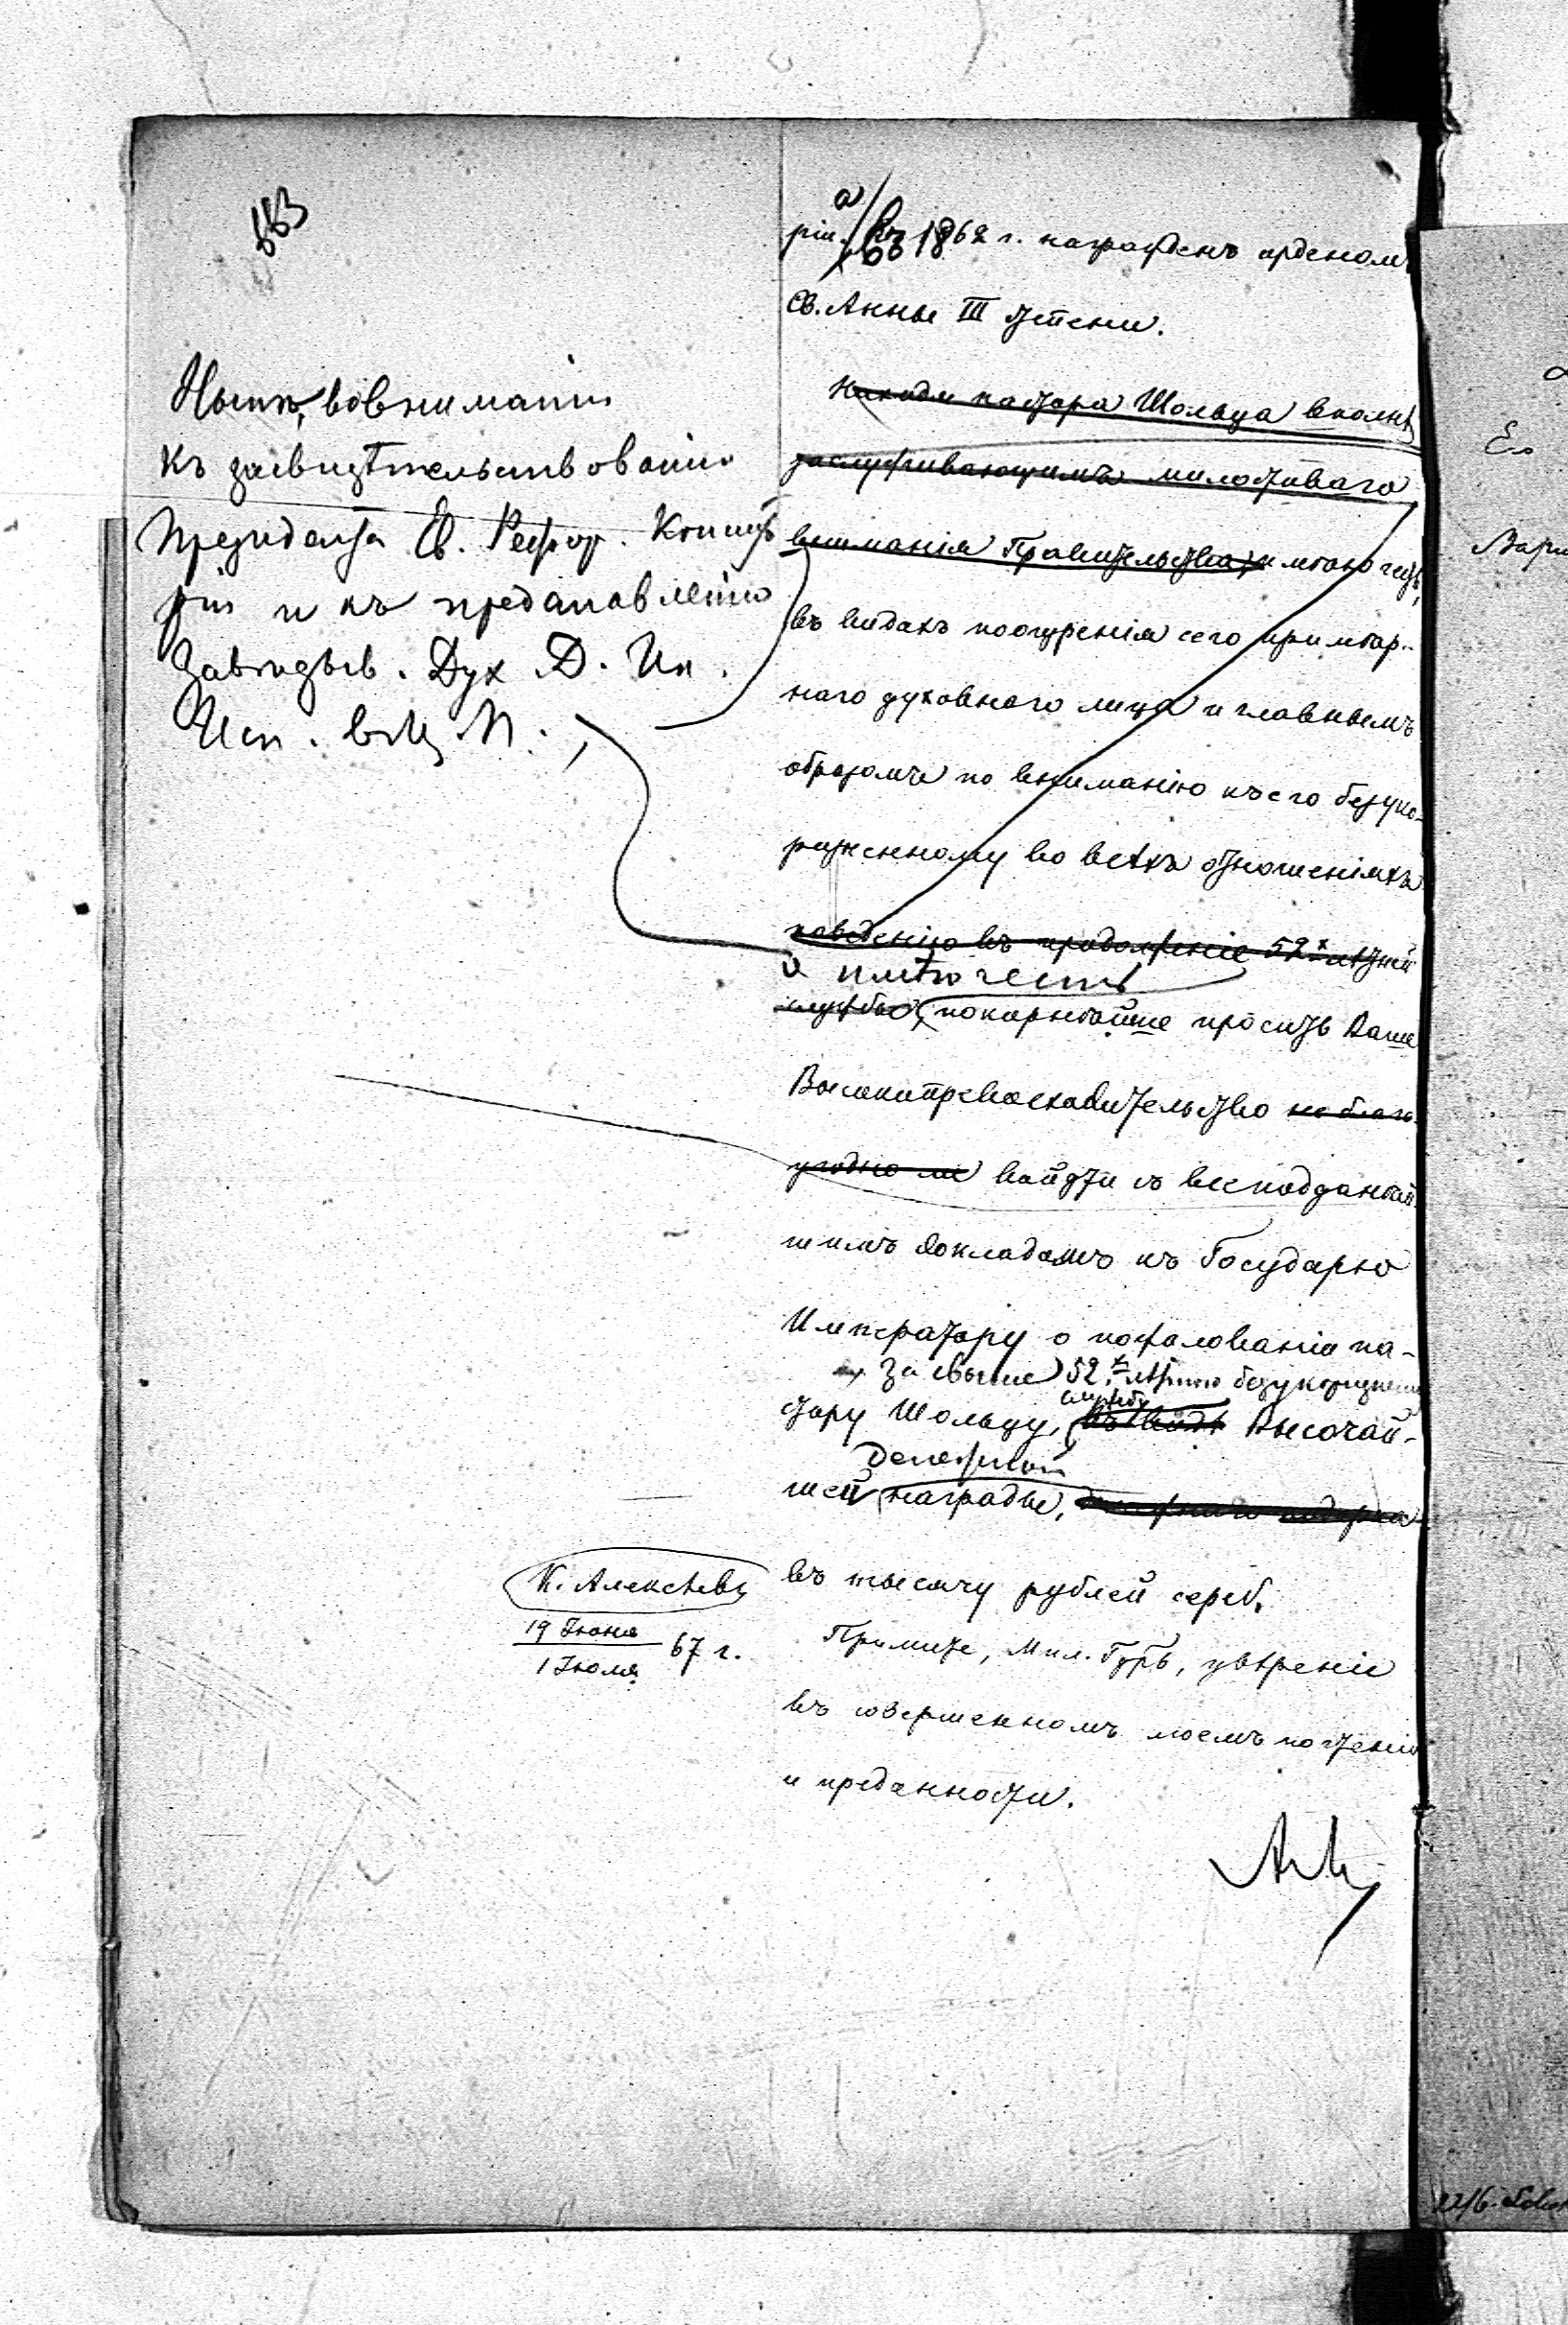 553
Нынѣ, во вниманіи
къ засвидѣтельствованію
Президента Ев. Реформ. Консисто
ріи и къ предстановленію
Завѣдыв. Дух. Д. Ин.
Исп. въ Ц. П.
ріи, а въ 1862 г. награжденъ орденомъ
Св. Анны III степени.
Находя пастора Шольца вполнѣ
заслуживающимъ милостиваго
вниманія Правительства, имѣю честь,
въ видахъ поощренія сего примѣр-
наго духовнаго лица и главнымъ
образомъ по вниманію къ его безуко-
ризненному во всѣхъ отношеніяхъ
поведенію въ продолженіе 52х лѣтней
имѣю честь
службы, покорнѣйше просить Ваше
Высокопревосходительство не благо
угодно ли войдти съ всеподданнѣй
шимъ докладомъ къ Государю
Императору о пожалованіи па-
за свыше 52х лѣтнюю безукоризнен
службу
стору Шольцу, въ видѣ Высочай-
денежной
шей награды,
въ тысячу рублей сереб.
К. Алексѣевъ
19 Іюня
1 Іюля
67 г.
Примите, Мил. Гдрь, увѣреніе
въ совершенномъ моемъ почтеніи
и преданности.